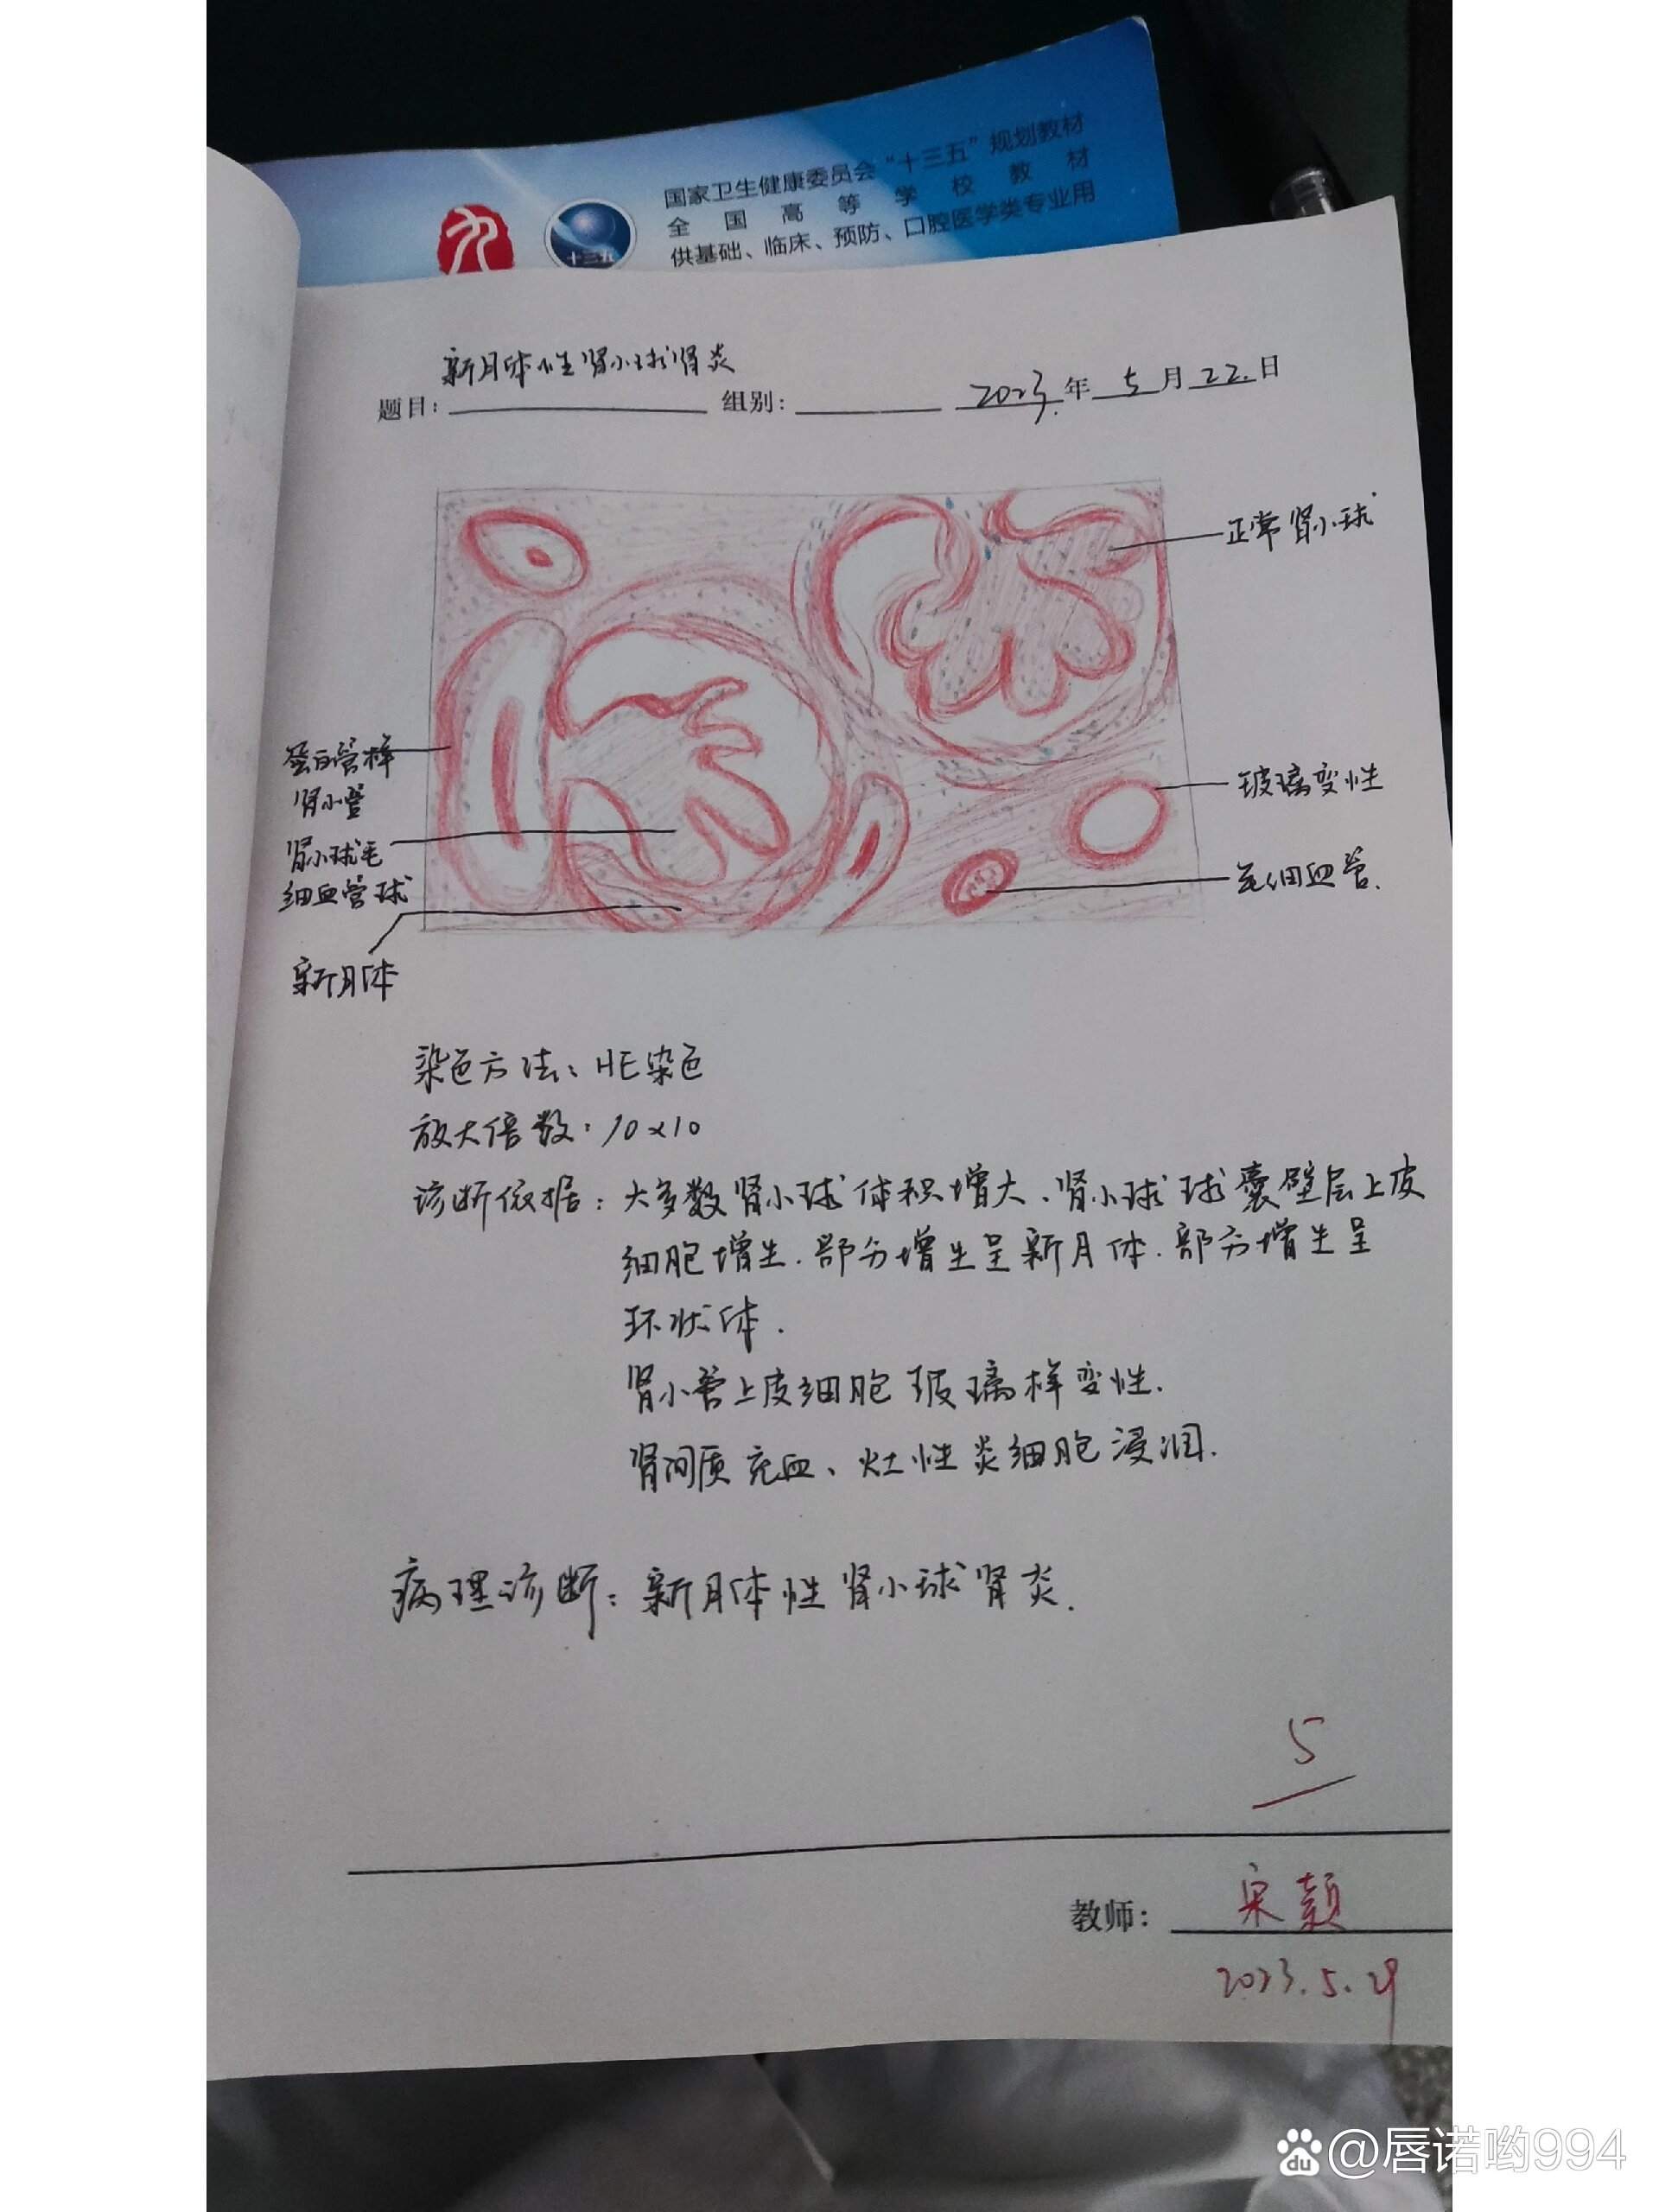 国家卫生健康委员会“十三五”规划教材
全国高等学校教材
供基础、临床、预防、口腔医学类专业用
十三五
新月体性肾小球肾炎
题目: 组别: 2023年5月22日
正常肾小球
蛋白管样
肾小管
玻璃变性
肾小球毛
细血管球
毛细血管.
新月体
染色方法: HE染色
放大倍数: 10×10
诊断依据: 大多数肾小球体积增大、肾小球球囊壁层上皮
细胞增生.部分增生呈新月体.部分增生呈
环状体.
肾小管上皮细胞玻璃样变性.
肾间质充血、灶性炎细胞浸润.
病理诊断: 新月体性肾小球肾炎.
5
教师: 宋颖
2023.5.29
Bai du @唇诺哟994